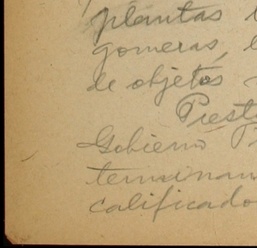 plantas
gomeras,
de objetos
Gobierno
terminan
calificado